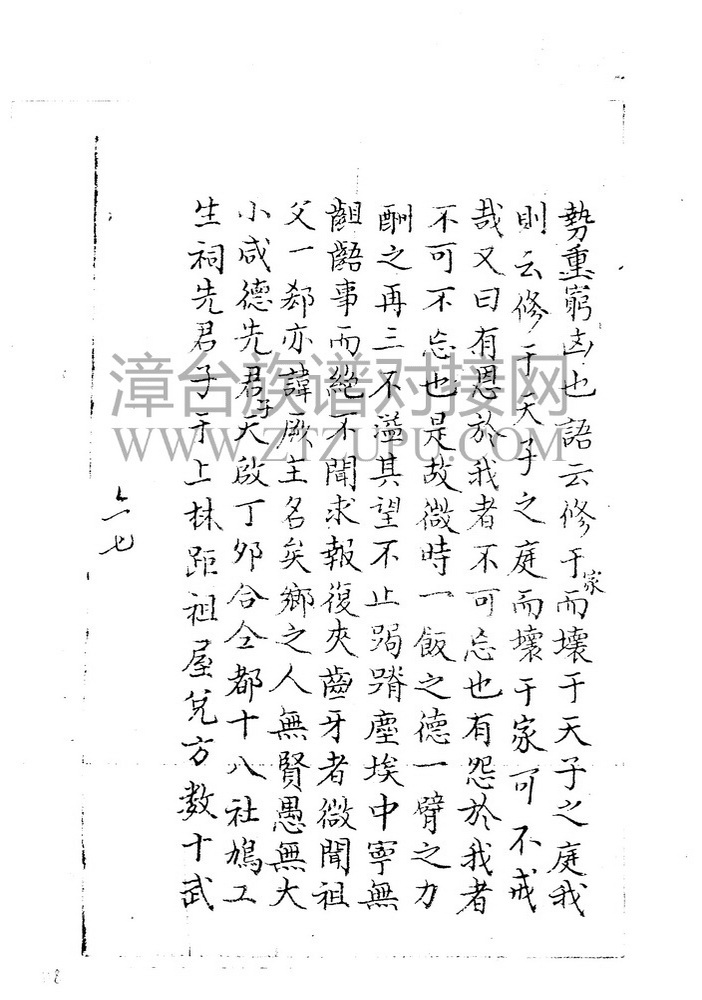 勢重窮凶也語云修于家而壞于天子之庭我
則云修于天子之庭而壞于家可不戒
哉又曰有恩於我者不可忘也有怨於我者
不可不忘也是故微時一飯之德一臂之力
酬之再三不溢其望不止跼蹐塵埃中寧無
齟齬事而絕不聞求報復夾齒牙者微聞祖
父一郄亦諱厥主名矣鄉之人無賢愚無大
小咸德先君子天啟丁夘合仝都十八社鳩工
生祠先君子于上林距祖屋兌方数十武
六七
漳台族谱对接网
WWW.ZTZUPU.COM